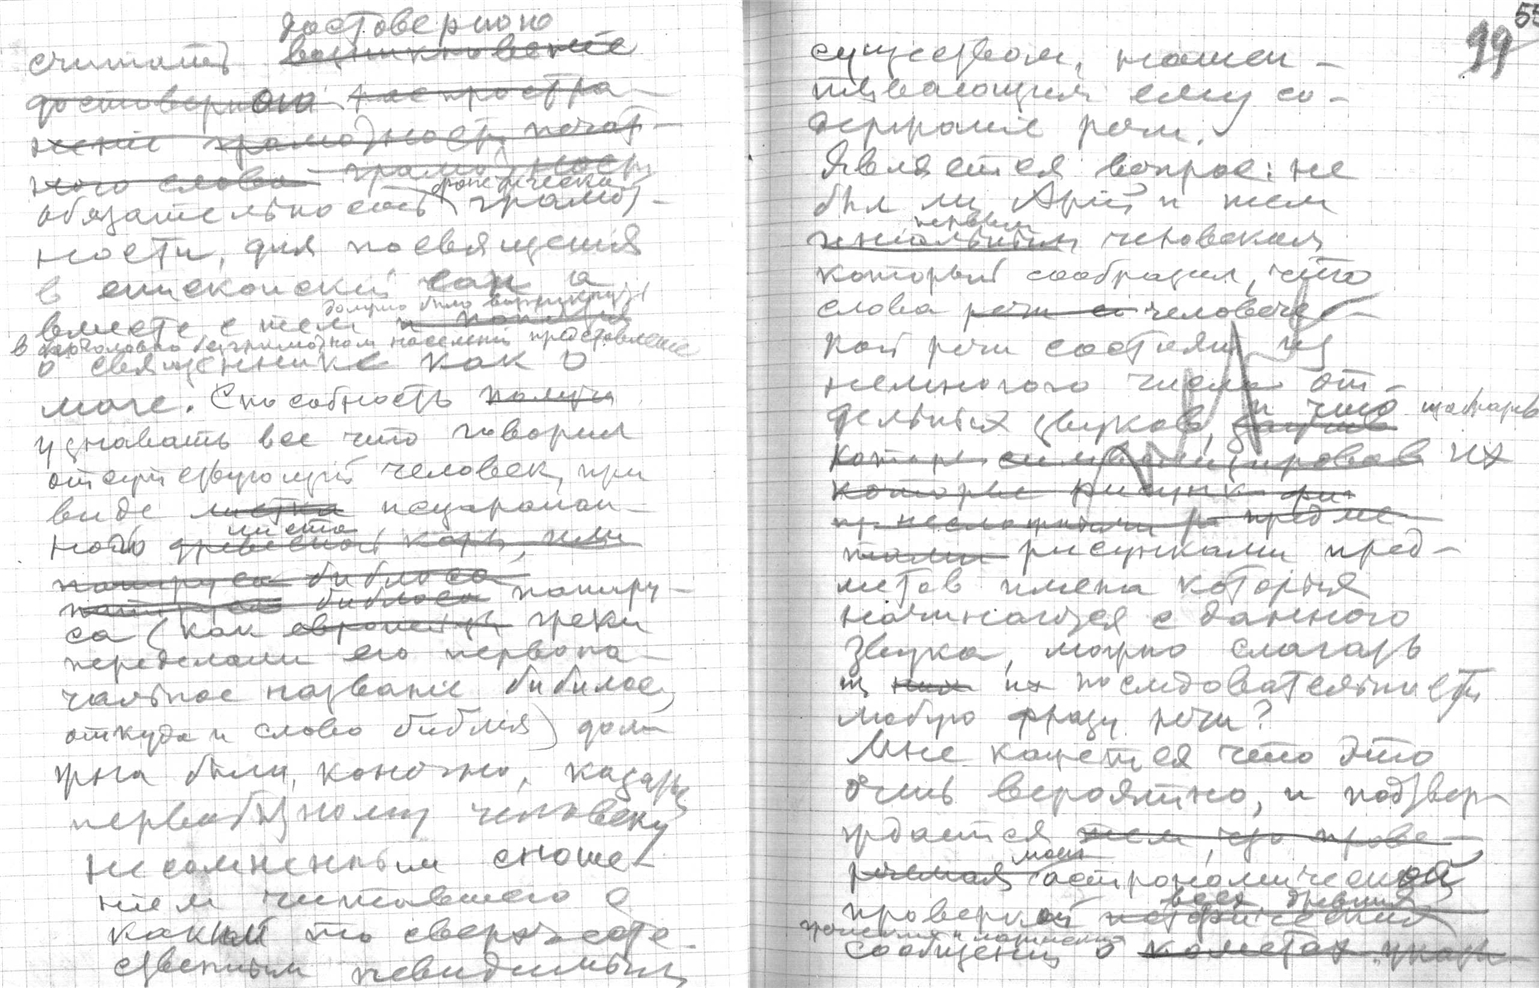 достоверною
считать возникновение
достоверной распростра-
нение грамотность печат-
ного слова грамотность
фактическая
обязательность грамот-
ности, для посвящения
в епископский сан а
вместе с тем
должно было возникнуть
в безграмотном населении представление
о священнике как о
маге. Способность
узнавать все что говорил
отсутствующий человек, при
виде листка исцарапан-
ного древесной коры, или
листа
папируса библоса
папируса библоса папиру-
са (как европейцы греки
переделали его первона-
чальное название библос,
откуда и слово библия) дол-
жна была, конечно, казаться
первобытному человеку
несомненным сноше-
нием читавшего с
каким то сверхъесте-
ственным невидимым
55
99
существом, нашеп-
тывающим ему со-
держание речи.
Является вопрос: не
был ли Арий и тем
первым
гениальным человеком
который сообразил, что
слова речи человечес-
кой речи состоят из
немногого числа от-
дельных звуков, и что
их
которые рисунк
несложными предме-
тами рисунками пред-
метов имена которых
начинаются с данного
звука, можно слагать
из них их последовательности
любую фразу речи?
Мне кажется что это
очень вероятно, и подтвер-
ждается тем, что прове-
моей
астрономической
всех древних
проверкой исторических
сообщений о кометах